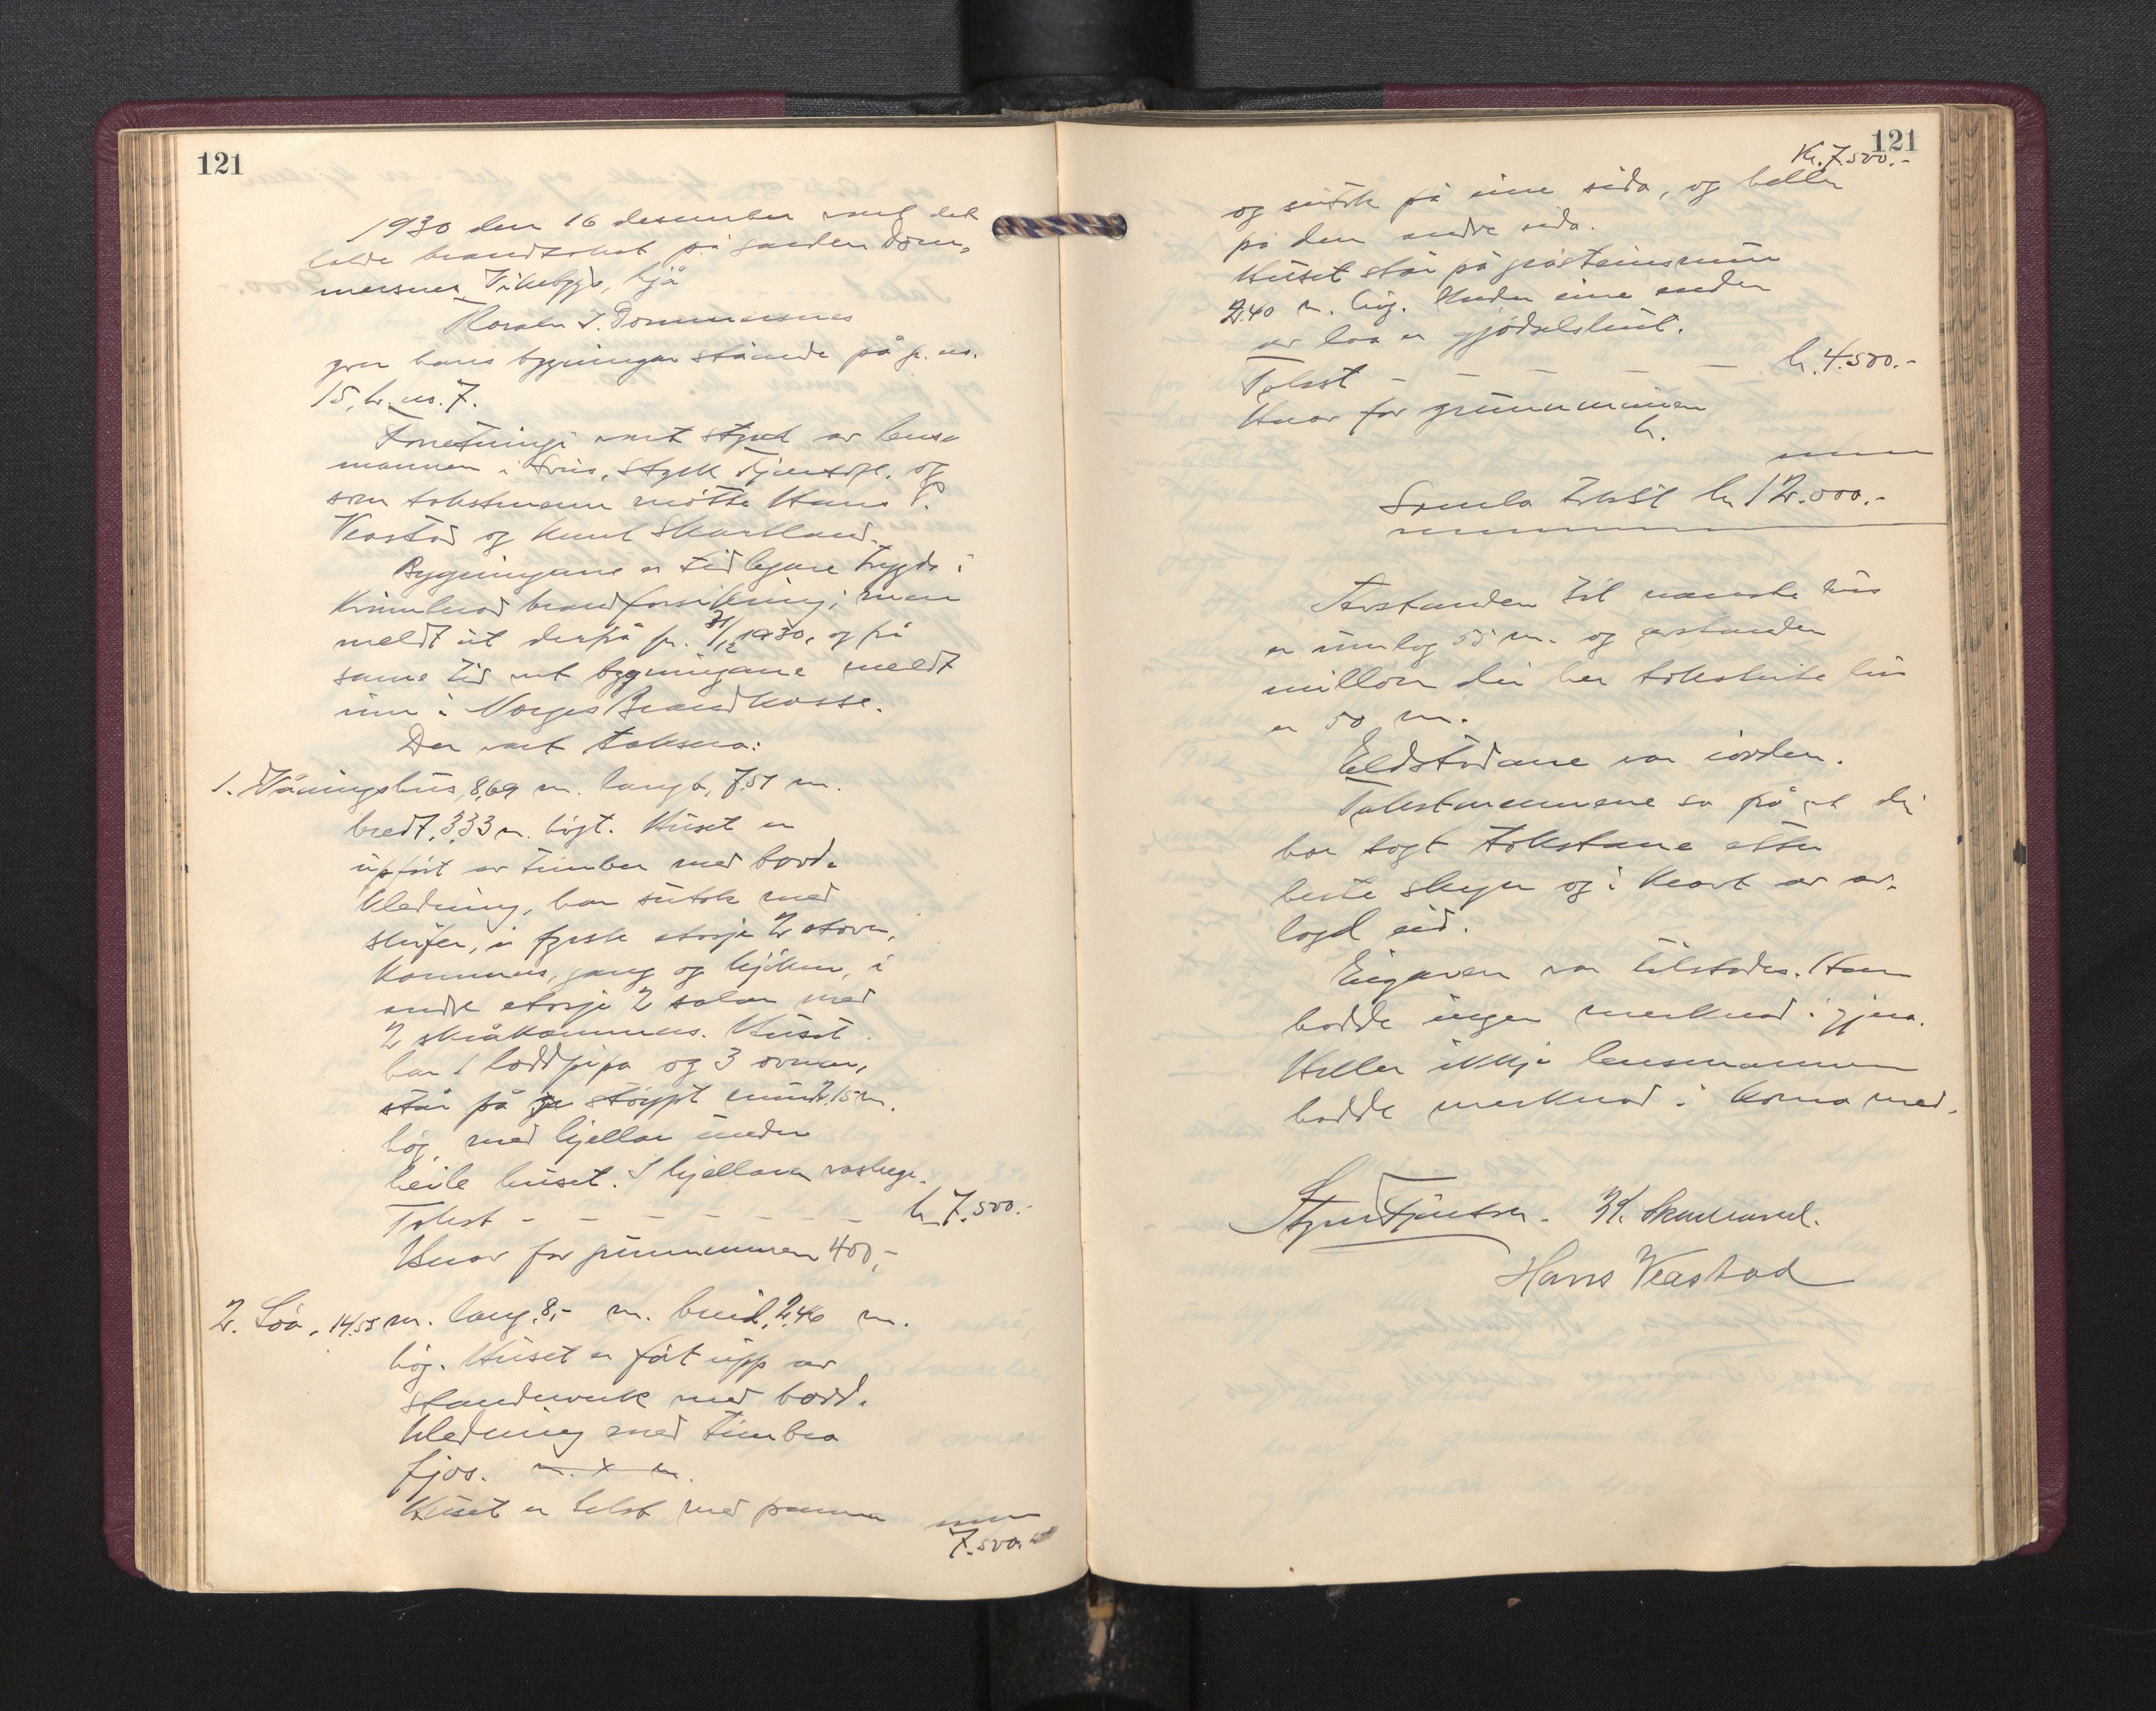 121
1930 den 16 desember vart det
halde brandtakst på garden Dom-
mersnes Vikebygd, hjå
J. Dommersnes
yver hans bygningarståande på g. no.
15, br. no. 7.
Forretningi vart styrt av lens-
mannen i Ølen, og
som takstmenn møtte Hans P.
Veastad og Knut Skartland.
Bygningane er tidlegare trygda i
brandforsikring, men
meldt ut derifrå pr. 31/12 1930, og frå
same tid vert bygningane meldt
inn i Norges Brandkasse.
Der vart taksera:
1. Våningshus, 8,69 m. langt, 7,51 m.
bredt, 3,33 m. högt. Huset er
uppfört av timber med bord-
kledning, har sutak med
skifer, i fyrste etasje 2 stover,
kammers, gang og kjöken, i
andre etasje 2 salar med
2 skråkammers. Huset
har 1 loddpipa og 3 ovnar,
står på støypt mur 2,15 m.
hög, med kjellar under
heile huset. I kjellaren
Takst - - - - - - - kr. 7.500.-
Hvar for grunnmuren 400,-
2. Löa, 14.55 m. lang, 8,- m. breid, 2,46 m.
hög. Huset er fört upp av
standerverk med bord-
kledning med timbra
fjos. m. x m.
Huset er tekt med panner
7.500.-
121
Kr. 7.500.-
og sutak på eine sida, og heller
på den andre sida.
Huset står på gråsteinsmur
2,40 m. hög. Under eine enden
av löa er gjødselshus.
Takst - - - - - kr. 4.500.-
Hvar for grunnmuren
kr.
Samla takst kr. 12.000.-
Avstanden til næraste hus
er umlag 55 m. og avstanden
millom dei her takserte hus
er 50 m.
Eldstadane var i orden.
Takstmennene sa frå at dei
har sagt takstane etter
beste skyn og i kraft av av-
lagd eid.
Eigaren var tilstades. Han
hadde ingen merknad i gjera.
Heller ikkje lensmannen
hadde merknad i koma med.
Hans Veastad